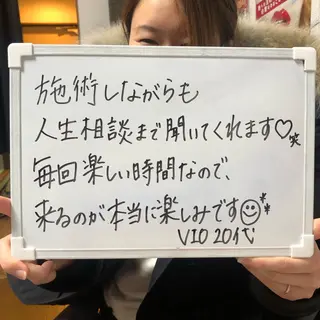 施術しながらも
人生相談まで聞いてくれます♡笑
毎回楽しい時間なので、
来るのが本当に楽しみです☺
VIO 20代